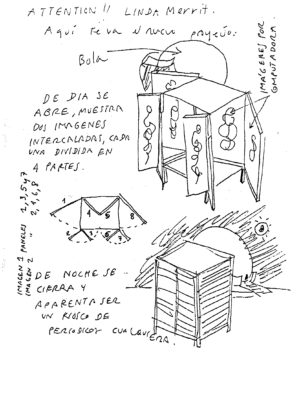 ATTENTION!! LINDA Merrit.
Aquí te va el nuevo proyecto:
Bola
IMÁGENES POR
COMPUTADORA.
DE DIA SE
ABRE, MUESTRA
DOS IMAGENES
INTERCALADAS, CADA
UNA DIVIDIDA EN
4 PARTES.
1
4
5
8
2
3
6
7
IMAGEN 1 PANELES 1, 3, 5 y 7
IMAGEN 2 " 2, 4, 6, 8
DE NOCHE SE
CIERRA Y
APARENTA SER
UN KIOSCO DE
PERIODICOS CUALQUIERA.